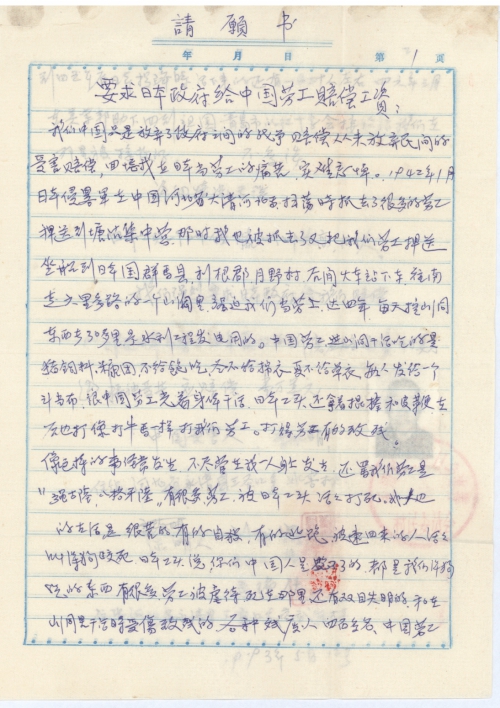 請願书
年 月 日 第 1 页
要求日本政府给中国劳工赔偿工资:
我们中国只是放弃了政府之间的战争赔偿从未放弃民间的
受害赔偿,回忆我在日本当劳工的痛苦,实难 。1942年1月
日本侵略军在中国河北省大清河北 扫荡时抓去了很多的劳工
押送到塘沽集中营,那时我也被抓去了又把我们劳工押送
坐船到日本国群马县,利根郡月野村,后间火车站下车往南
走六里多路的一个山洞里,强迫我们当劳工,达四年,每天往山洞
东西去 多里是水利工程发电用的。中国劳工进山洞干活吃的是
猪饲料,糠团不给饭吃,冬不给棉衣,夏不给单衣,每人发给一个
斗 布,很中国劳工光着身体干活,日本工头还拿着棍棒和皮鞭在
后边打像打牛马一样打我们劳工。打 劳工有的致残。
像这样的事经常发生,不只发生我一人身上发生,还骂我们劳工是
有很多劳工,被日本工头活活打死。我也
的生活是很苦的有的自杀,有的逃跑,被逮回来的人活活
叫洋狗咬死,日本工头说,你们中国人是 了的,都是我们洋狗
吃的东西有很多劳工被虐待死在那里还有双目失明的,和在
山洞里干活时受伤致残的,各种残废人四百多名,中国劳工